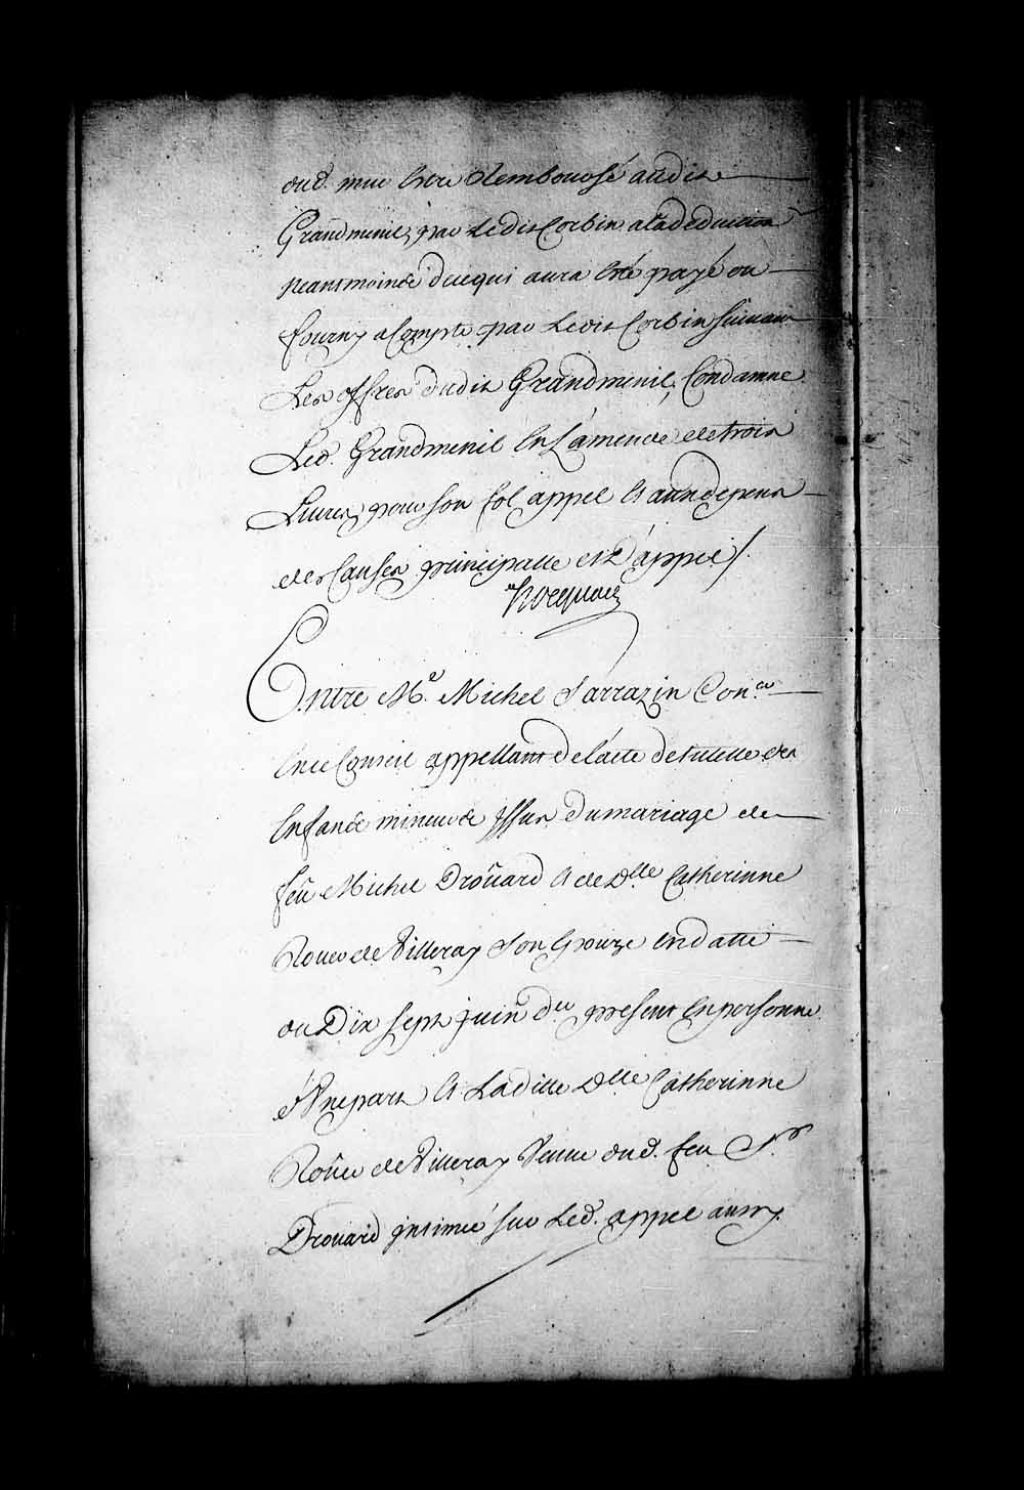 dud. mur Estre Remboursé audit
Grandmenil par Ledit Corbin ala deduction
neantmoinds dece qui aura Esté payé ou
fourny a Compte par Ledit Corbin suivant
Les offres dudit Grandmenil, Condamne
Led. Grandmenil En L'amende de trois
Livres pour son fol appel Et aux depens
des Causes principalle et D'appel /.
Hocquart
Entre Me. Michel Sarrazin Coner
En ce Conseil appellant de l'acte de tutelle des
Enfands mineurds Issus du mariage de
feû Michel Droüard Et de Dlle Catherinne
Roüer de Villeray Son Epouze En datte
du Dix sept juin der present En personne
d'Une part Et Laditte Dlle Catherinne
Roüer de Villeray Veuve dud. feu Sr.
Droüard jntimée sur Led. appel aussy